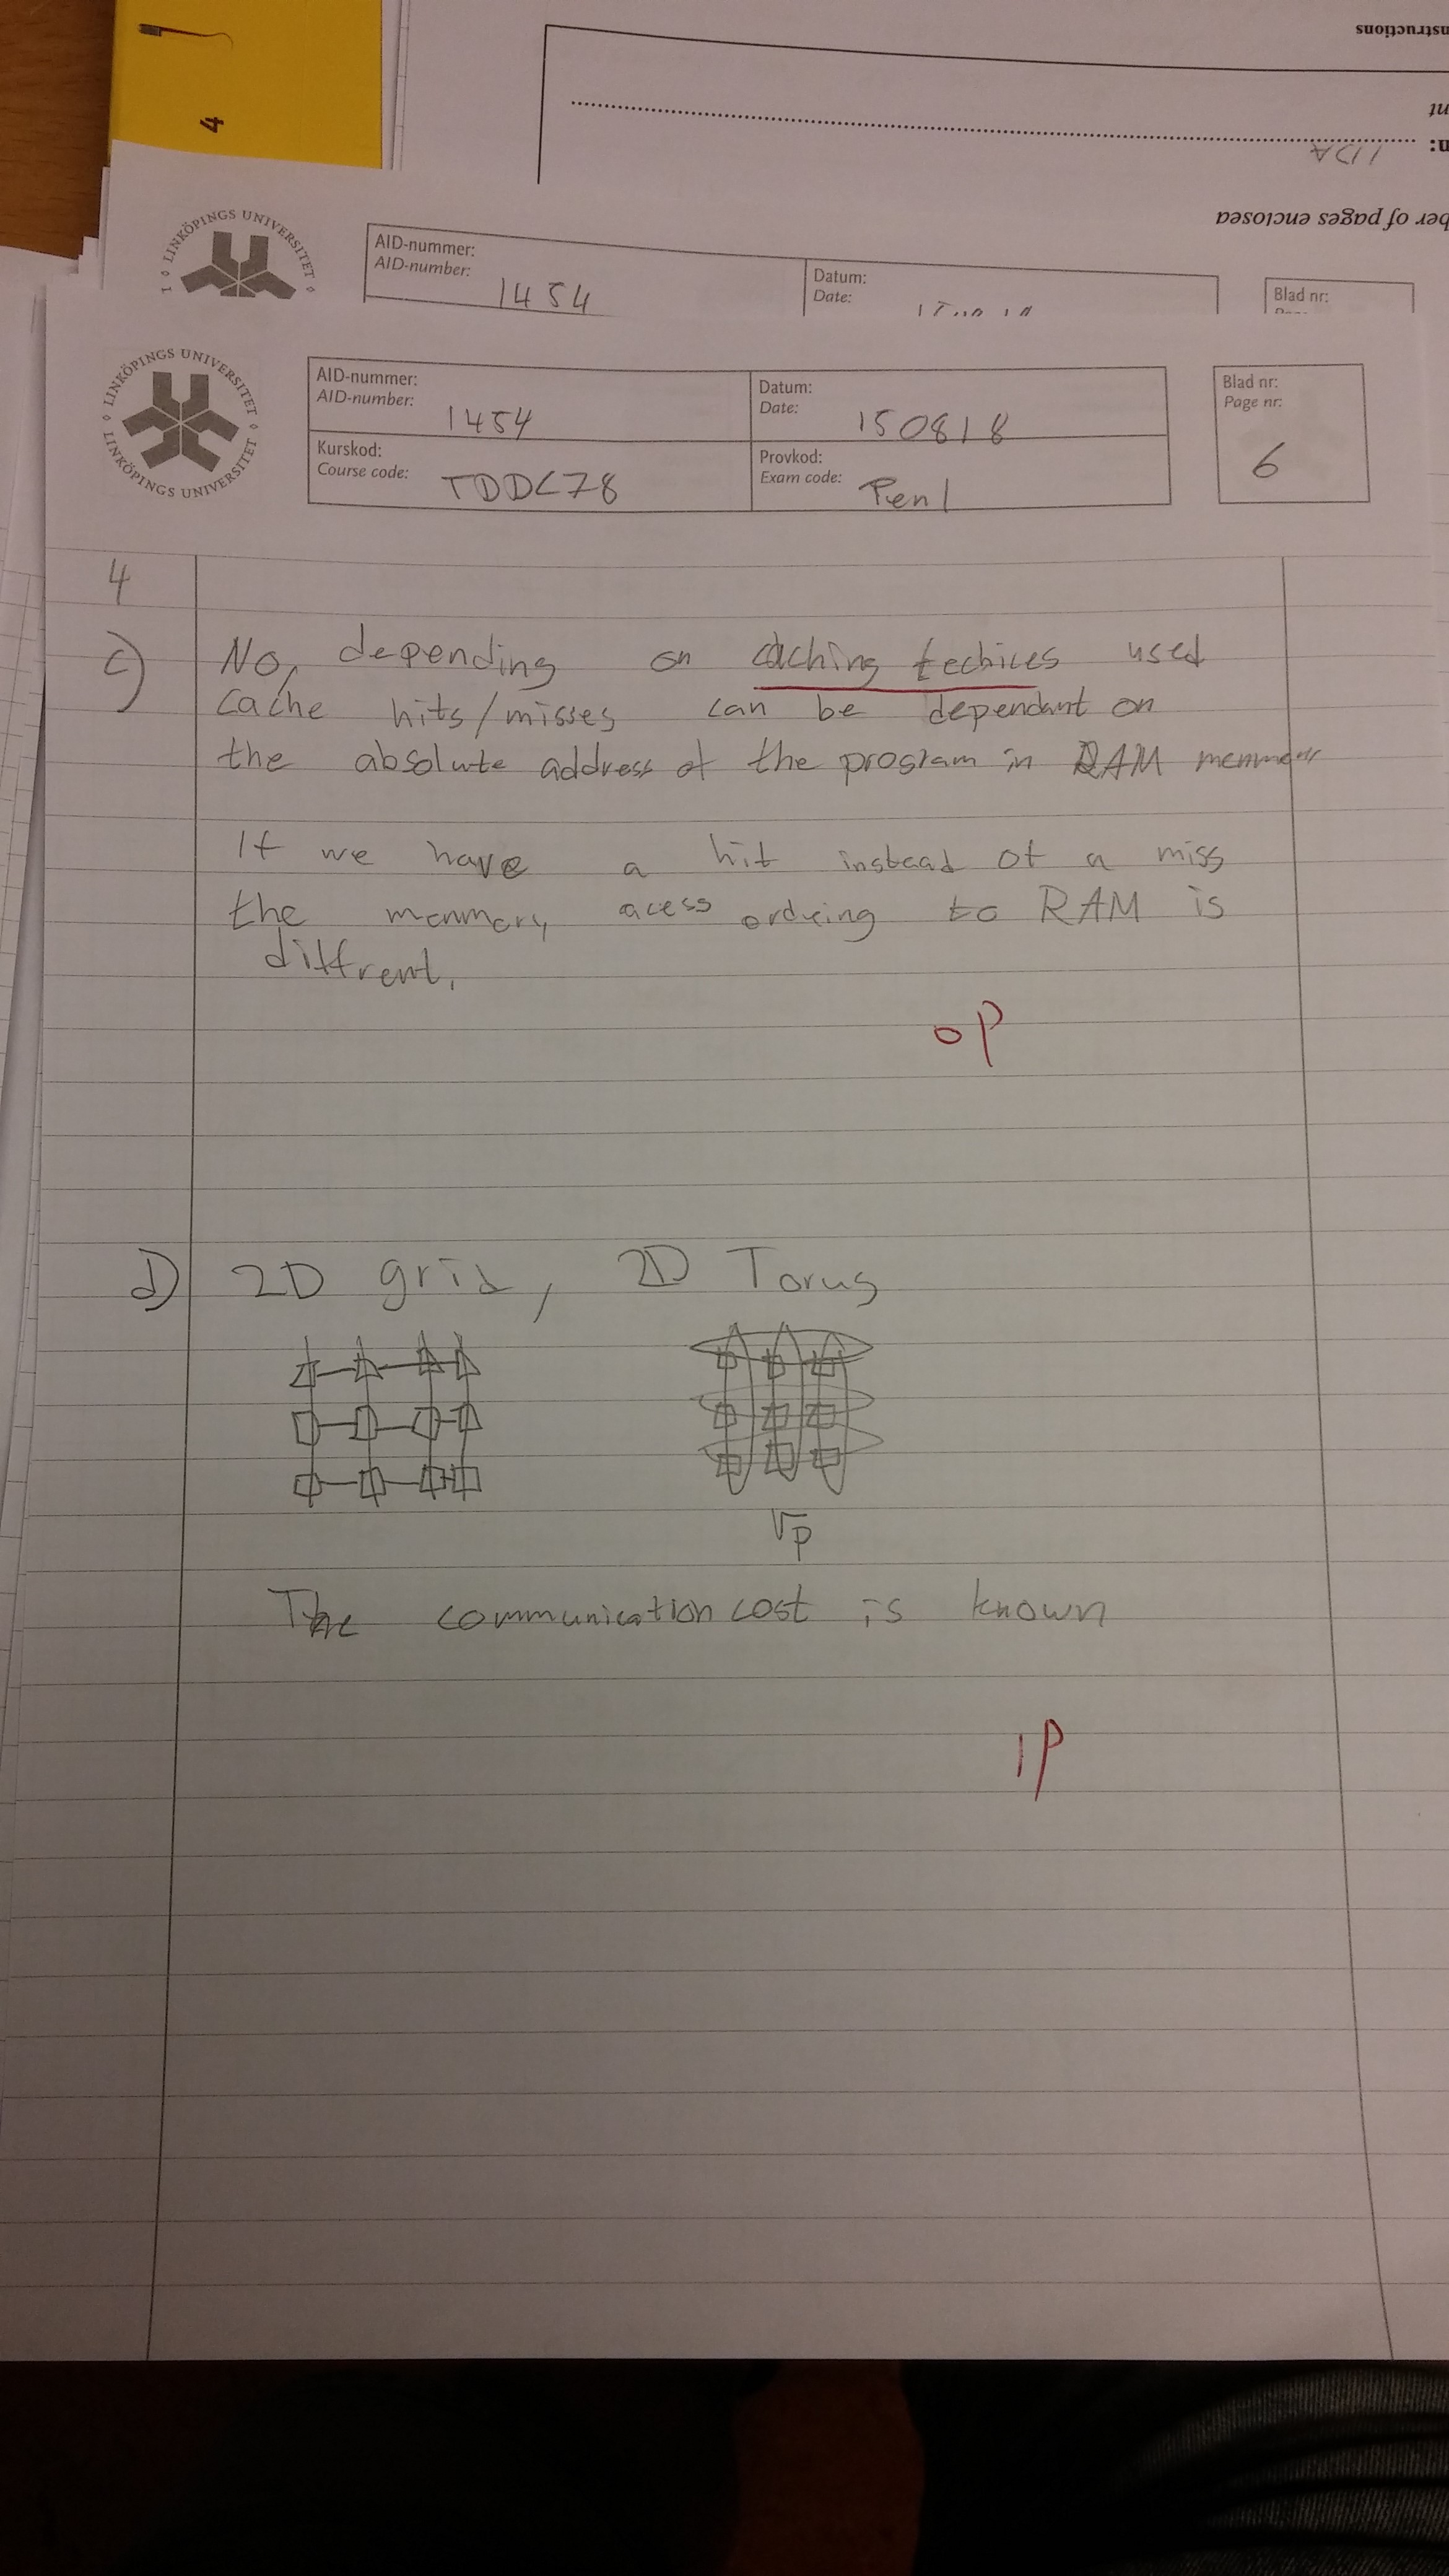 4
nstructions
nt
n:
IDA
ber of pages enclosed
LINKÖPINGS UNIVERSITET
AID-nummer:
AID-number:
1454
Datum:
Date:
Blad nr:
LINKÖPINGS UNIVERSITET
LINKÖPINGS UNIVERSITET
AID-nummer:
AID-number:
1454
Datum:
Date:
150818
Blad nr:
Page nr:
6
Kurskod:
Course code:
TDDC78
Provkod:
Exam code:
Ten1
4
c) No, depending on caching technices used
cache hits/misses can be dependant on
the absolute address of the program in RAM
If we have a hit instead of a miss
the menmory acess ordering to RAM is
diffrent.
0p
d) 2D grid, 2D Torus
√p
The communication cost is known
1p